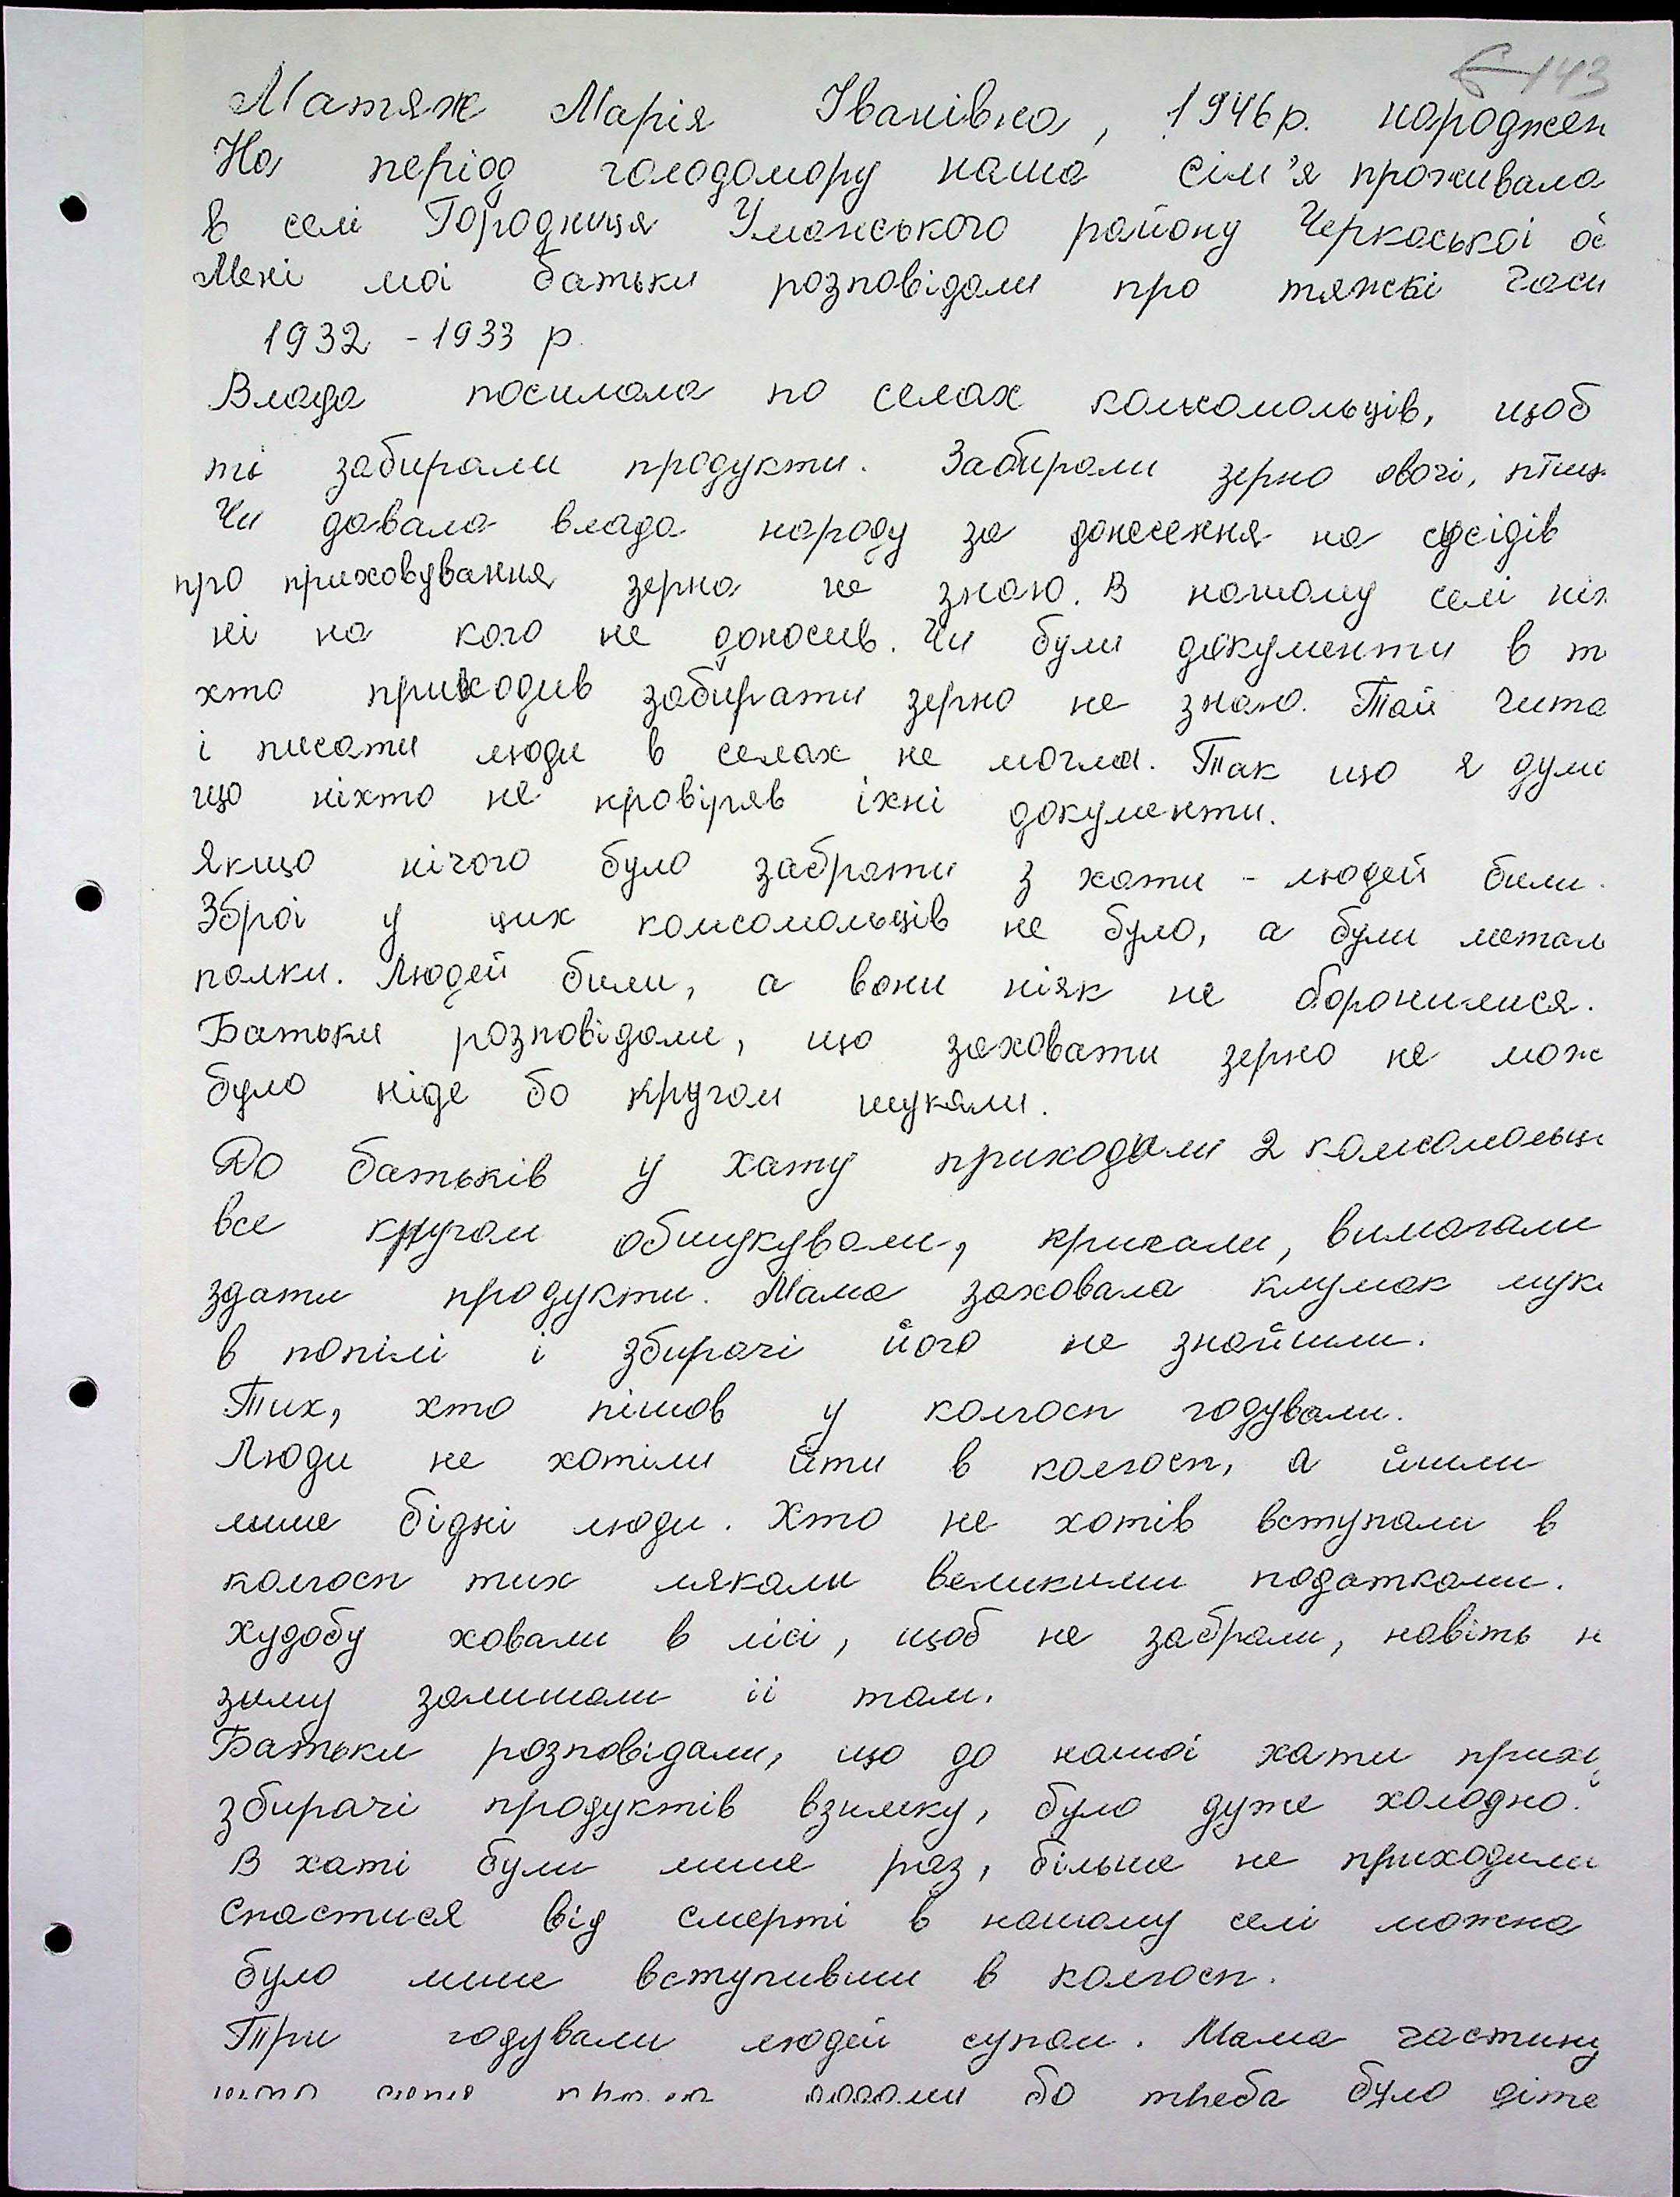 143
Матяж Марія Іванівна, 1946 р. народжен
На період голодомору наша сім'я проживала
в селі Городниця Уманського району Черкаської об
Мені мої батьки розповідали про тяжкі часи
1932 - 1933 р.
Влада посилала по селах комсомольців, щоб
ті забирали продукти. Забирали зерно овочі, птиц
Чи давала влада народу за донесення на сусідів
про приховування зерна не знаю. В нашому селі ніх
ні на кого не доносив. Чи були документи в т
хто приходив забирати зерно не знаю. Тай чита
і писати люди в селах не могли. Так що я дума
що ніхто не провіряв їхні документи.
Якщо нічого було забрати з хати - людей били.
Зброї у цих комсомольців не було, а були метал
палки. Людей били, а вони ніяк не боронилися.
Батьки розповідали, що заховати зерно не мож
було ніде бо кругом шукали.
До батьків у хату приходили 2 комсомольц
все кругом обшукували, кричали, вимагали
здати продукти. Мама заховала клумак мук
в попілі і збирачі його не знайшли.
Тих, хто пішов у колгосп годували.
Люди не хотіли йти в колгосп, а йшли
лише бідні люди. Хто не хотів вступали в
колгосп тих лякали великими податками.
Худобу ховали в лісі, щоб не забрали, навіть н
зиму залишали її там.
Батьки розповідали, що до нашої хати прихо
збирачі продуктів взимку, було дуже холодно.
В хаті були лише раз, більше не приходили
Спастися від смерті в нашому селі можна
було лише вступивши в колгосп.
Три годували людей супом. Мама частину
бо треба було діте